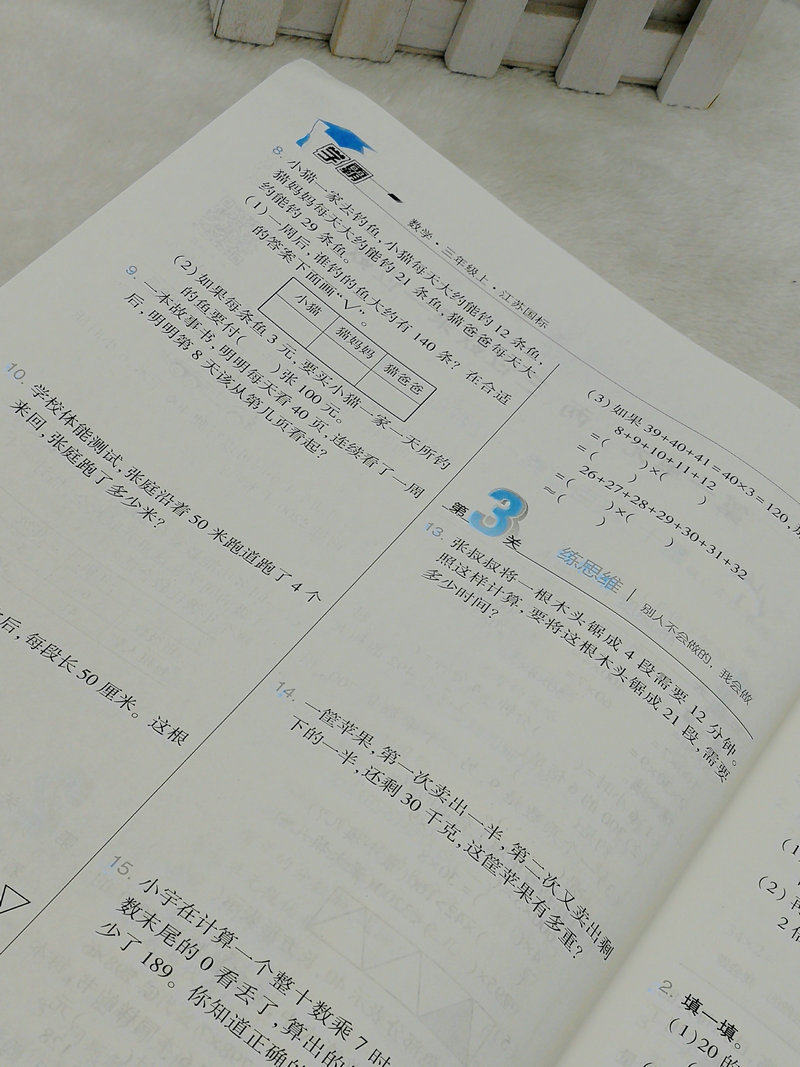 学霸
数学·三年级上·江苏国标
8. 小猫一家去钓鱼,小猫每天大约能钓12条鱼,
猫妈妈每天大约能钓21条鱼,猫爸爸每天大
约能钓29条鱼。
(1)一周后,谁钓的鱼大约有140条?在合适
的答案下面画“√”。
小猫 猫妈妈 猫爸爸
(2)如果每条鱼3元,要买小猫一家一天所钓
的鱼要付( )张100元。
9. 一本故事书,明明每天看40页,连续看了一周
后,明明第8天该从第几页看起?
10. 学校体能测试,张庭沿着50米跑道跑了4个
来回,张庭跑了多少米?
后,每段长50厘米。这根
(3)如果39+40+41=40×3=120,
8+9+10+11+12
=( )×( )
=( )
26+27+28+29+30+31+32
=( )×( )
=( )
第3关 练思维 别人不会做的,我会做
13. 张叔叔将一根木头锯成4段需要12分钟。
照这样计算,要将这根木头锯成21段,需要
多少时间?
14. 一筐苹果,第一次卖出一半,第二次又卖出剩
下的一半,还剩30千克,这筐苹果有多重?
15. 小宇在计算一个整十数乘7时
数末尾的0看丢了,算出的
少了189。你知道正确的
(1
(2)
2倍
2. 填一填。
(1)20的